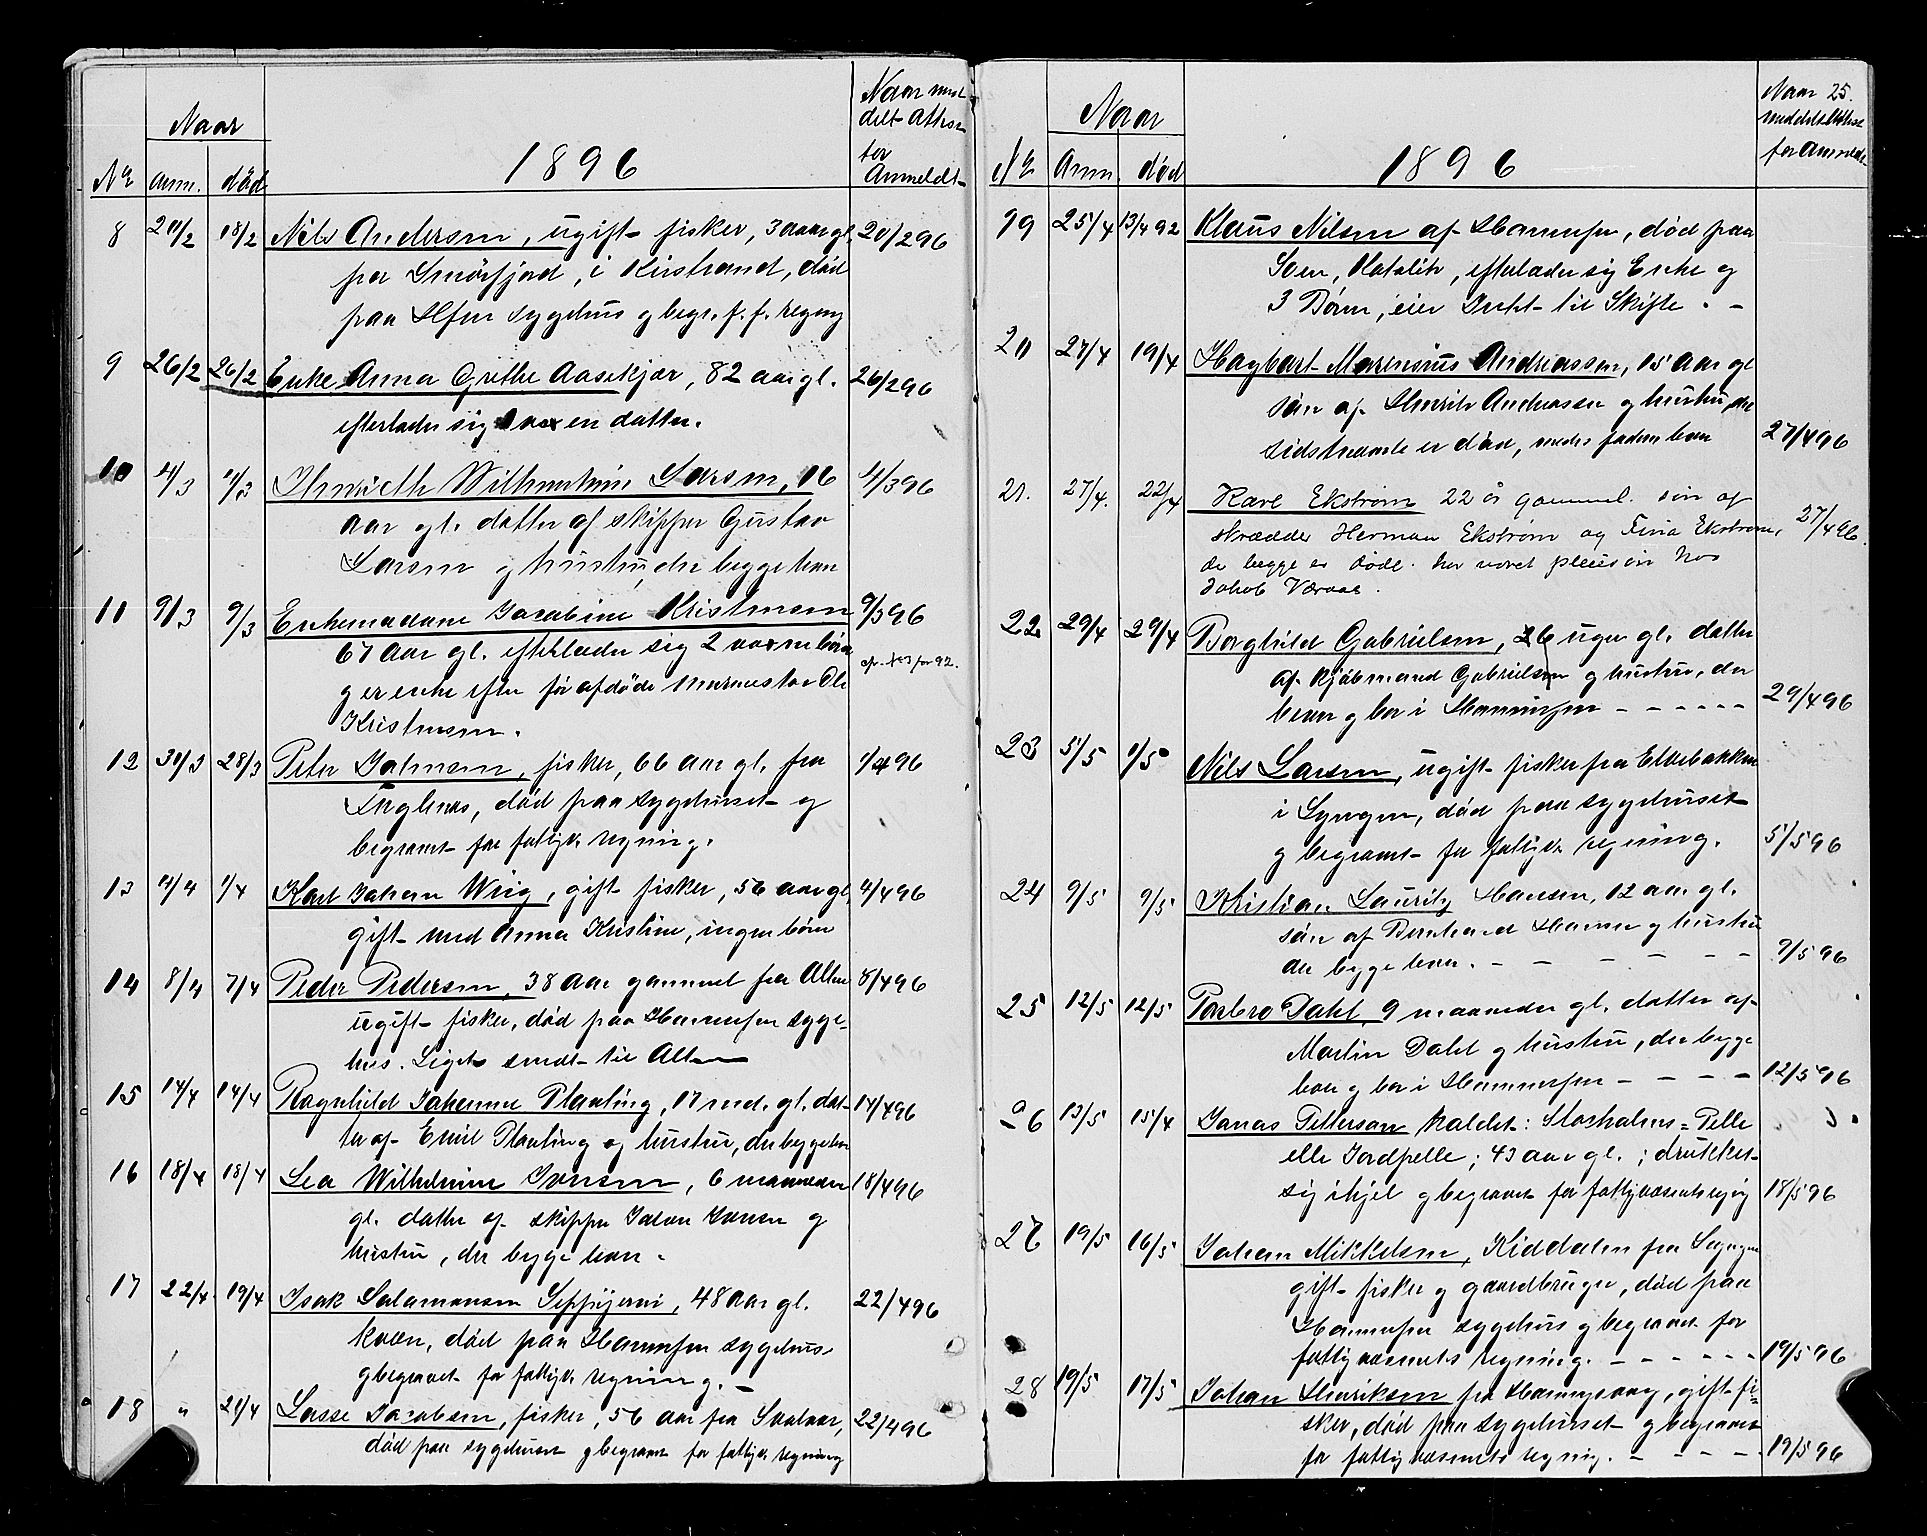 Naar
Naar med
delt Attest
for
Anmeldt
1896
No anm. død
8 20/2 18/2 Nils Andersen, ugift fisker, 30 aar gl. 20/2 96
fra Smørfjord, i Kistrand, død
paa Hfest sygehus og begr. f. f. regning
9 26/2 26/2 Enke Anna Grethe Aasekjær, 82 aar gl. 26/2 96
efterlader sig en datter.
10 4/3 1/3 Henriette Wilhelmine Larsen, 16 4/3 96
aar gl. datter af skipper Gustav
Larsen og hustru, der begge lever
11 9/3 9/3 Enkemadame Jacobine Kristensen 9/3 96
67 aar gl. efterlader sig 2 voxne børn
og er enke efter før afdøde murmester Ole
Kristensen.
12 30/3 28/3 Peter Salmonsen, fisker, 66 aar gl. fra 1/4 96
Fuglenes, død paa sygehuset og
begravet for fattigv. regning.
13 4/4 1/4 Karl Johan Wiig, gift fisker, 56 aar gl. 4/4 96
gift med Anna Kristine, ingen børn
14 8/4 7/4 Peder Pedersen, 38 aar gammel fra Alten 8/4 96
ugift fisker, død paa Hammerfest syge-
hus. Liget sendt til Alten
15 14/4 14/4 Ragnhild Johanne Planting, 17 md. gl. dat- 14/4 96
ter af Emil Planting og hustru, der begge lever
16 18/4 18/4 Lea Wilhelmine Iversen, 6 maaneder 18/4 96
gl. datter af skipper Iversen og
hustru, der begge lever.
17 22/4 19/4 Isak Salamonsen Seppijervi, 48 aar gl. 22/4 96
kvæn, død paa Hammerfest sygehus
og begravet for fattigv. regning. -
18 " 20/4 Lasse Jacobsen, fisker, 56 aar fra 22/4 96
død paa sygehuset og begravet for fattigv. regning
Naar
Naar 25.
meddelt Attest
for Anmeldt
1896
No Anm. død
19 25/4 13/4 92 Klaus Nilsen af Hammerfest, død paa
Søen, efterlader sig Enke og
3 Børn, eier Intet til Skifte. -
20 27/4 19/4 Hagbart Marensius Andreassen, 15 aar gl
søn af Henrik Andreassen og hustru, der
sidstnævnte er død, medens faderen lever 27/4 96
21. 27/4. 22/4 Karl Ekstrøm 22 år gammel. søn af
skrædder Herman Ekstrøm og Fina Ekstrøm, 27/4 96.
de begge er døde. har været pleiesøn hos
Jakob Væraas.
22 29/4 29/4 Borghild Gabrielsen, 6 uger gl. datter
af kjøbmand Gabrielsen og hustru, der
lever og bor i Hammerfest - - - - - - 29/4 96
23 5/5 1/5 Nils Larsen, ugift fisker fra Elvebakken
i Lyngen, død paa sygehuset
og begravet for fattigv. regning. 5/5 96
24 9/5 9/5 Kristian Lauritz Hansen, 12 aar gl.
søn af Bernhard Hansen og hustru
der begge lever. - - - - - - 9/5 96
25 12/5 12/5 Torbro Dahl, 9 maaneder gl. datter af
Martin Dahl og hustru, der begge
lever og bor i Hammerfest - - - - 12/5 96
26 13/5 15/4 Jonas Pettersen kaldet: Stockholms=Pelle
eller Jordpelle; 43 aar gl.; drukket
sig ihjel og begravet for fattigvæsenets regning 18/5 96
27 19/5 16/5 Johan Mikkelsen, Kiddalen fra Lyngen
gift fisker og gaardbruger, død paa
Hammerfest sygehus og begravet for
fattigvæsenets regning. - - - - - - 19/5 96
28 19/5 17/5 Johan Henriksen fra Honningsvaag, gift fi-
sker, død paa sygehuset og begravet
for fattigvæsenets regning. - - - - 19/5 96